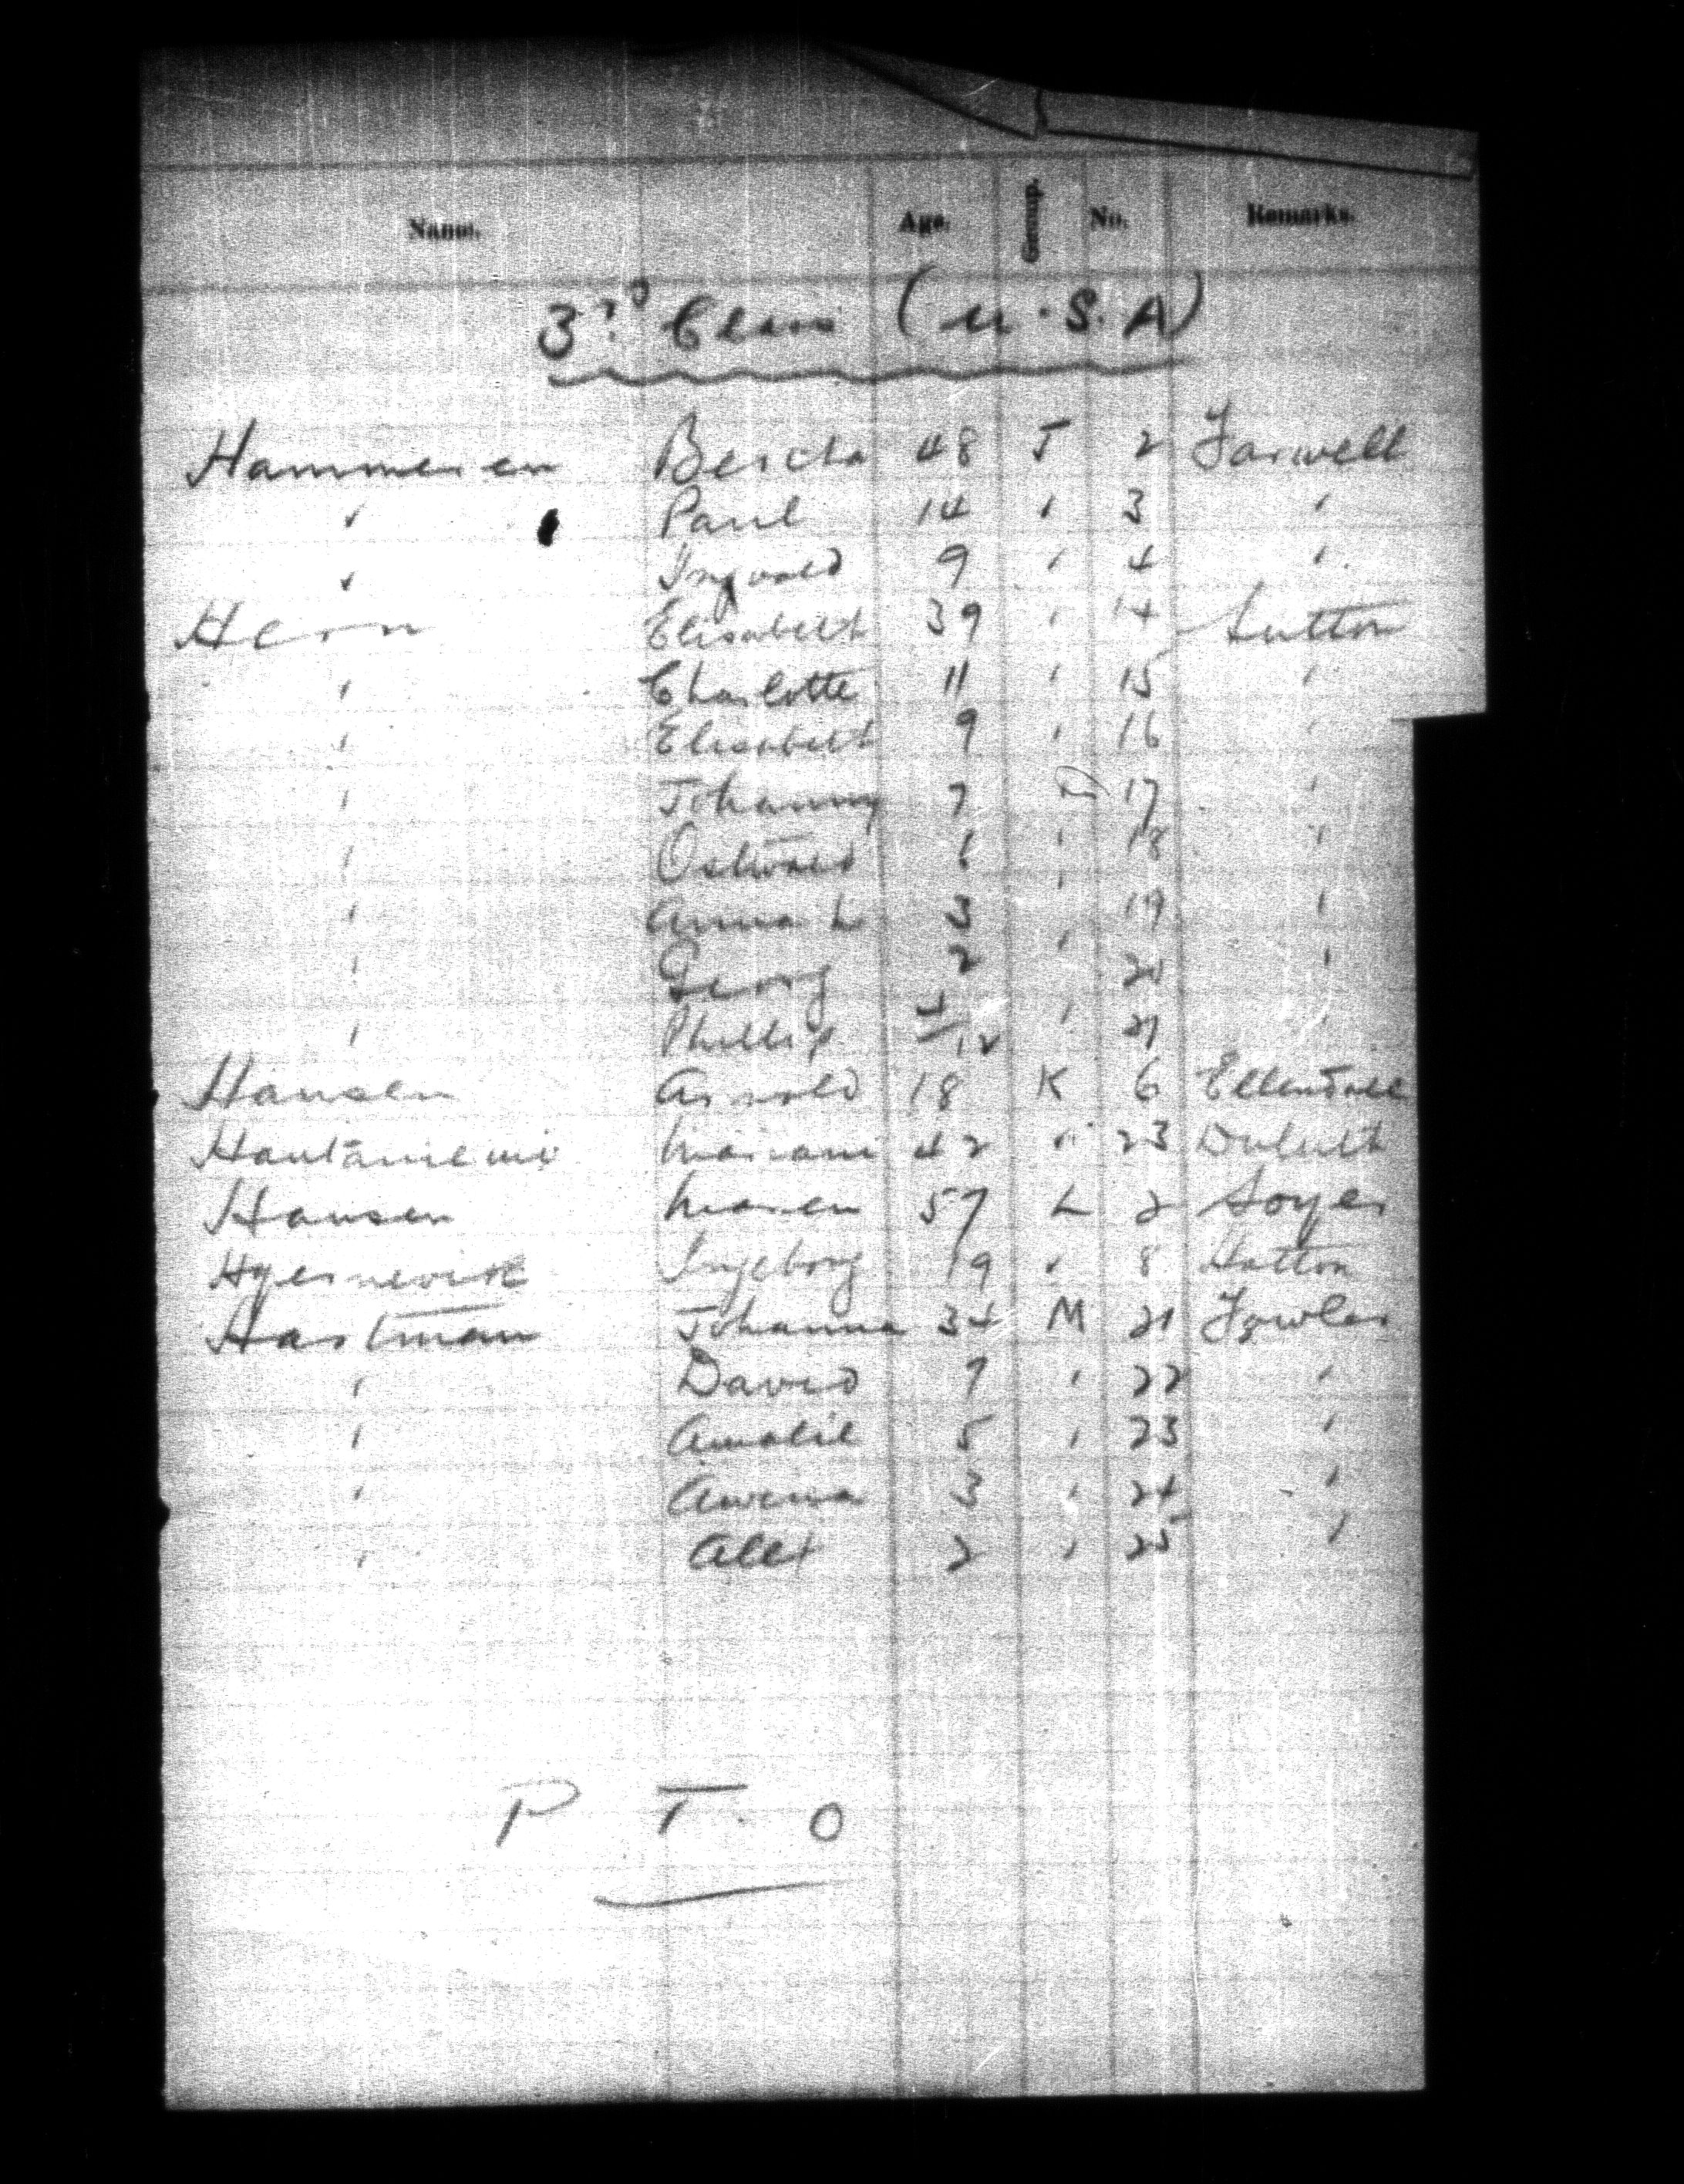 Name. Age. Group. No. Remarks.
3rd Class (U.S.A)
Hammeren Bertha 48 J 2 Farwell
" Paul 14 " 3 "
" Ingvald 9 " 4 "
Hern Elisabeth 39 " 14 Sutton
" Charlotte 11 " 15 "
" Elisabeth 9 " 16 "
" Johanny 7 17 "
" Ostwald 6 " 18 "
" Anna L 3 " 19 "
" Georg 2 " 20 "
" Phillip 4/12 " 21 "
Hansen Arnold 18 K 6 Ellendale
Hautaniemi 42 " 23 Duluth
Hansen Maren 57 L 2
Ingeborg 19 " 8 Hatton
Hartman Johanna 34 M 21 Fowler
" David 7 " 22 "
" Amalie 5 " 23 "
" 3 " 24 "
" Alex 2 " 25 "
P T. O